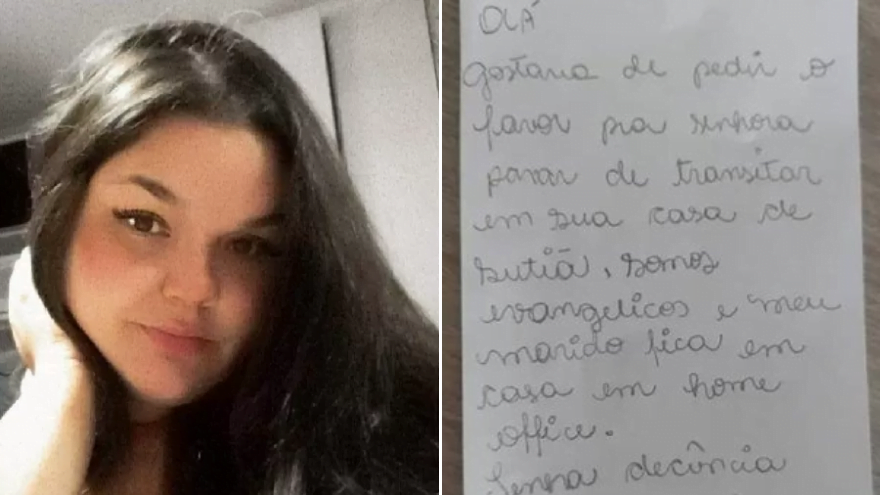 OLÁ
gostaria de pedir o
favor pra senhora
parar de transitar
em sua casa de
sutiã, somos
evangelicos e meu
marido fica em
casa em home
office.
Tenha decência